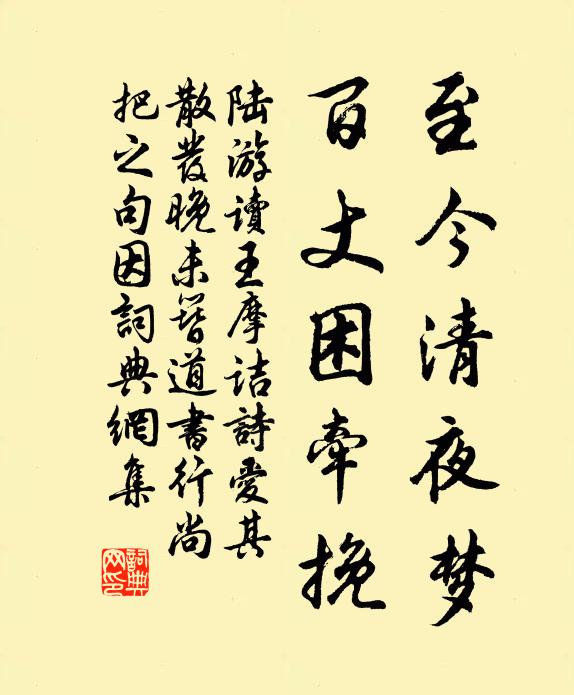 至今清夜梦
百丈困牵挽
陆游读王摩诘诗爱其
散发晚未簪道书行尚
把之句因詞典網集
詞典
网印